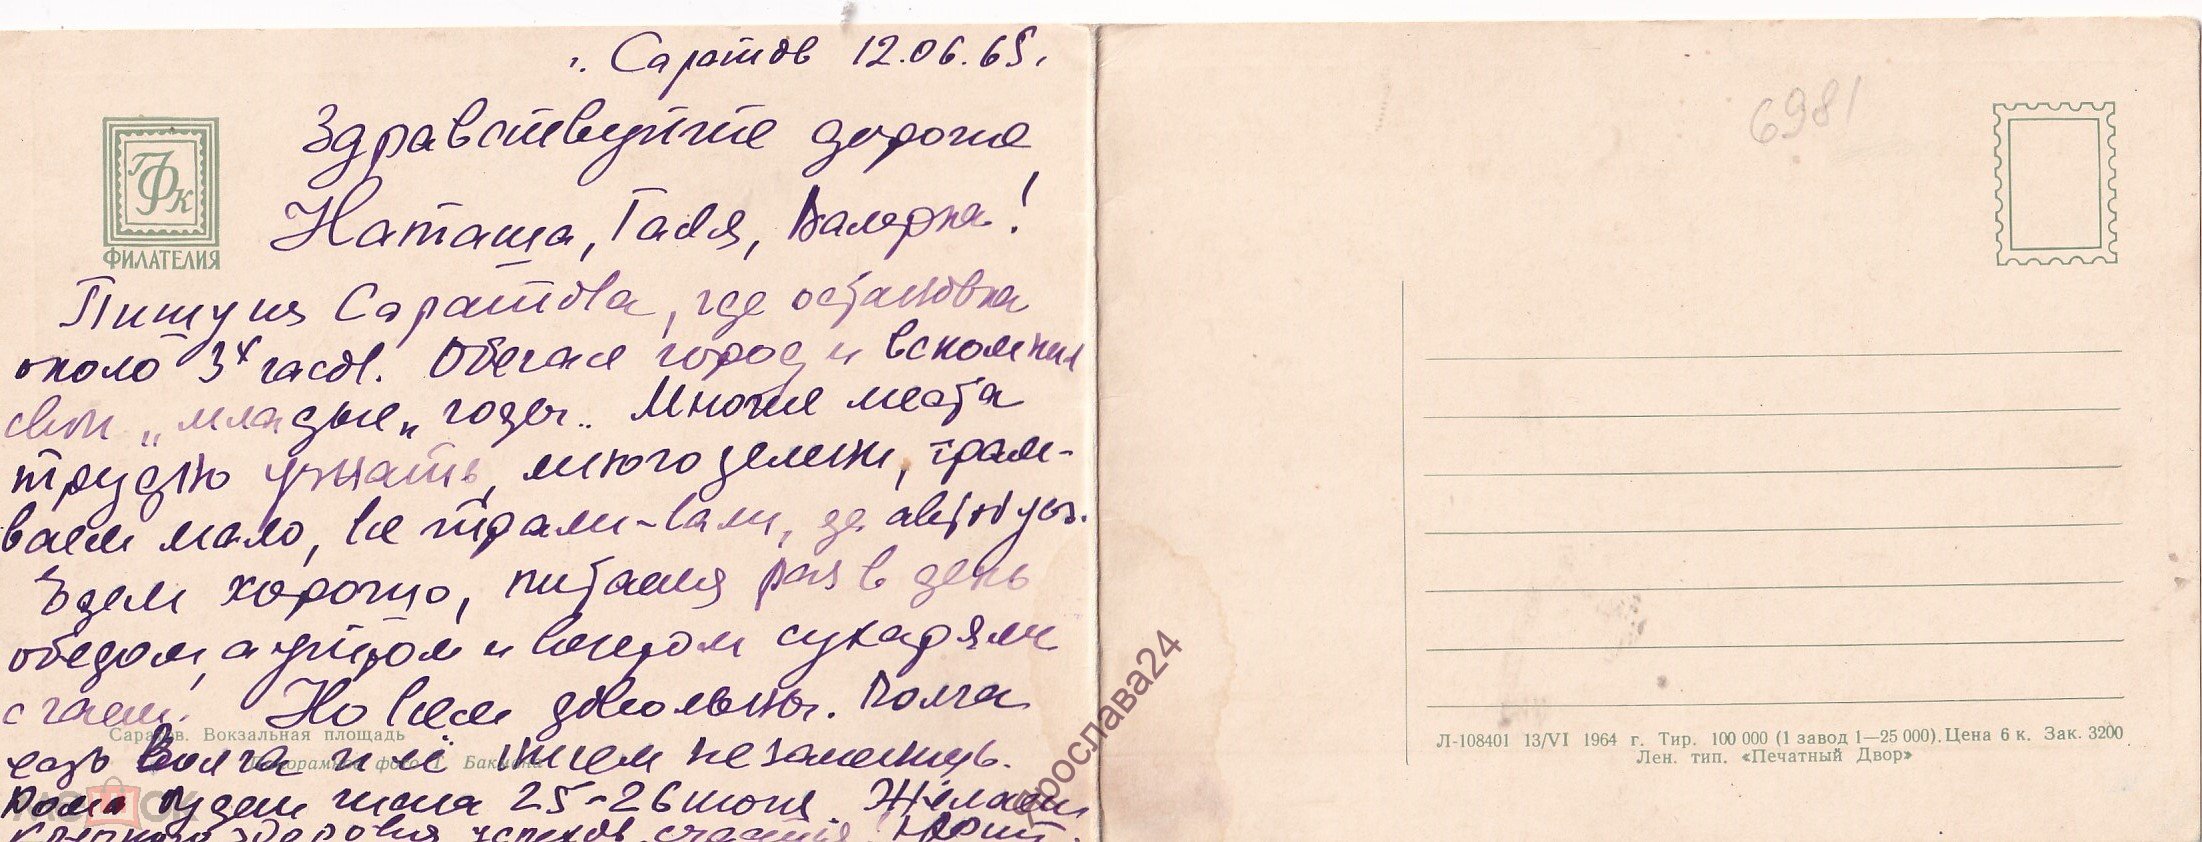 г. Саратов 12.06.65г.
Здравствуйте дорогие
Наташа, Галя, Валерка!
Пишу из Саратова, где остановка
около 3х часов. Обегал город и вспомнил
свои „младые„ годы.. Многие места
трудно узнать, много зелени, трам-
ваем мало, все трали-вали, да автобусы.
Едем хорошо, питаемся раз в день
обедом, а утром и вечером сухарями
с чаем. Но всем довольны. Волга
есть Волга и её ничем не заменишь.
Дома будем числа 25-26 июня. Желаем
крепкого здоровья, успехов, счастья.
ГФК
ФИЛАТЕЛИЯ
Саратов. Вокзальная площадь
Панорамное фото
6981
Л-108401 13/VI 1964 г. Тир. 100 000 (1 завод 1—25 000). Цена 6 к. Зак. 3200
Лен. тип. «Печатный Двор»
Ярослава24